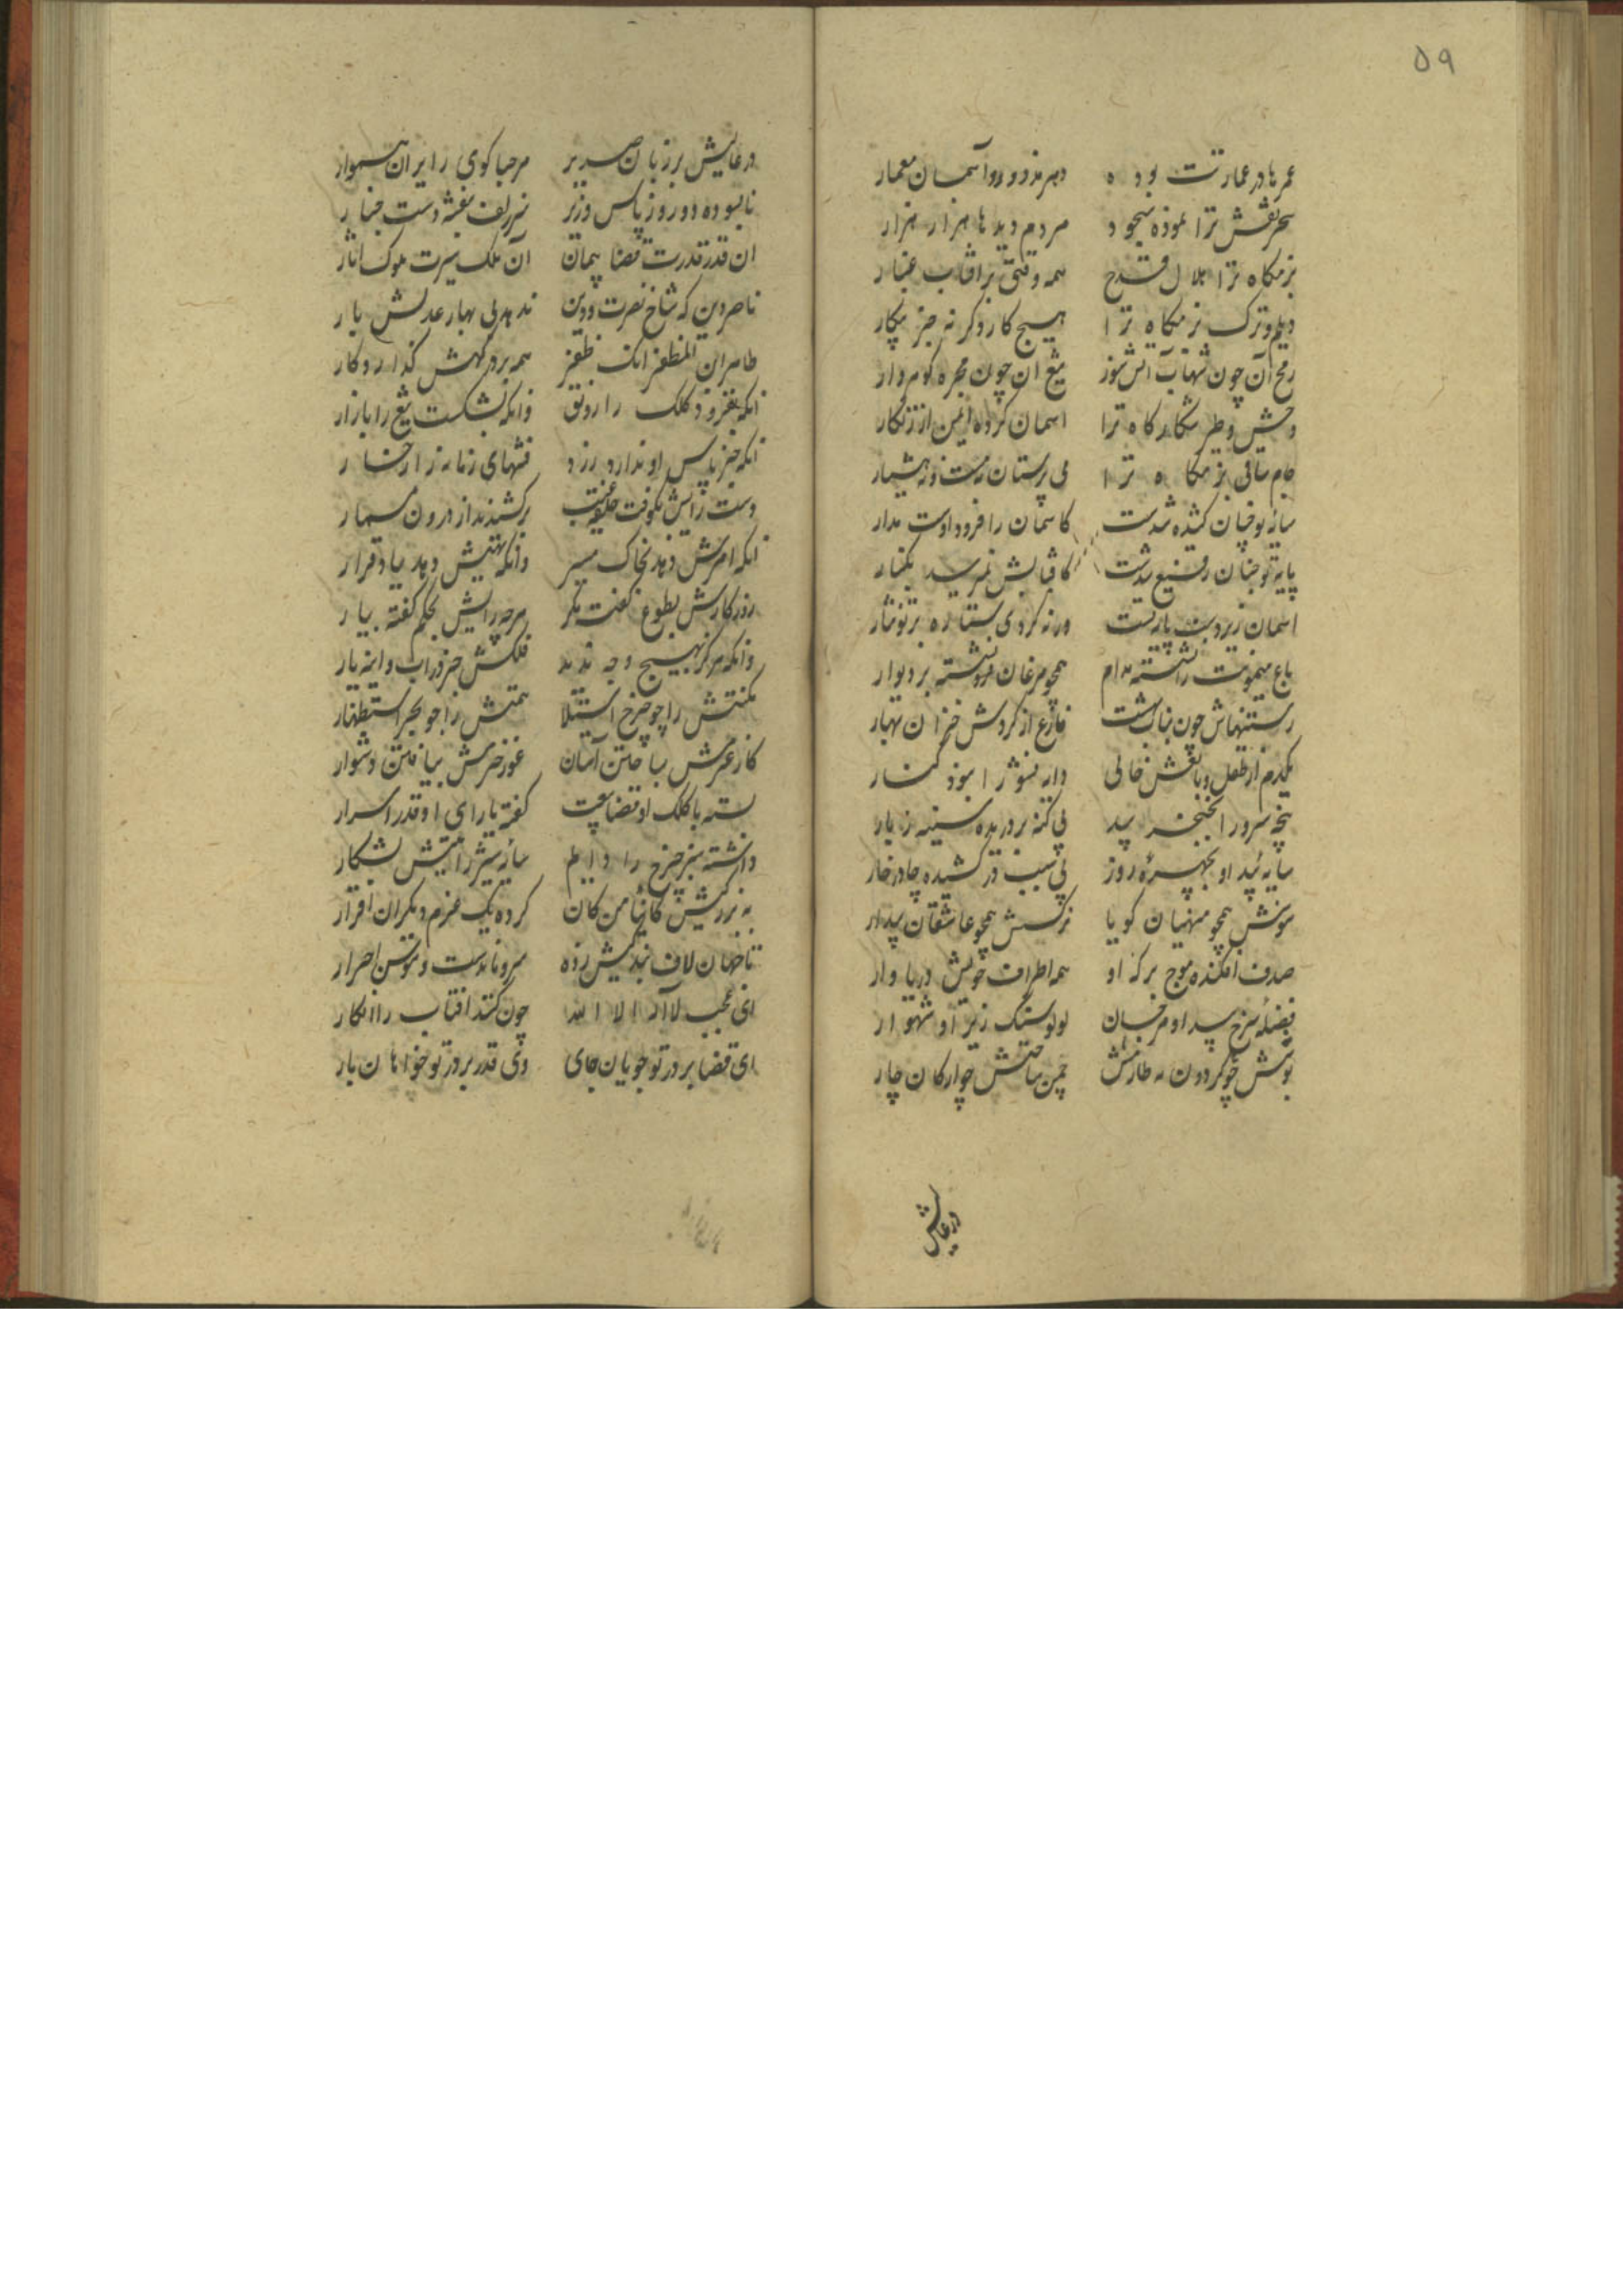 ۵۹
عمرها در عمارتت بوده دهر مزدور و آسمان معمار
سحر نقش ترا نموده سجود مردم دیدها هزار هزار
بزمگاه ترا هلال قدح همه وقتی بر افتاب غبار
دیلم و ترک رزمگاه ترا هیچ کار دگر نه جز پیکار
رمح آن چون شهاب آتش سوز تیغ ان چون مجره گوهردار
وحش و طیر شکارگاه ترا اسمان کرده ایمن از زنگار
جام ساقی بزمگاه ترا می پرستان نه مست و نه هشیار
سایه تو چنان کشیده شدست کاسمان را فرود اوست مدار
پایه تو چنان رفیع شدست کافتابش نمیرسد بکنار
اسمان زیر دست پایه تست ورنه کردی ستاره بر تو نثار
باغ میمونت را نشسته مدام همچو مرغان فرشته بر دیوار
رستنیهاش چون نبات بهشت فارغ از گردش خزان و بهار
یکدم از طفل و بالغش خالی دایه نشو را نبوده کنار
پنجه سرو را بخنجر بید بی گنه بر دریده سینه ز بار
سایه بید او بچهره روز بی سبب در کشیده چادر قار
سوسنش همچو منهیان گویا نرگسش همچو عاشقان بیدار
صدف افکنده موج برکه او همه اطراف خویش دریا وار
فضله سرخ بید او مرجان لولو سنگ ریز او شهوار
بوستانش چو گردون به طارمش چمن ساحتش چو ارکان چار
در دعایش
در دعایش بر زبان صریر مرحبا گوی زایران هموار
نابسوده دو روز پاس وزیر سر زلف بنفشه دست چنار
ان قدر قدرت قضا پیمان آن ملک سیرت ملوک آثار
ناصر دین که شاخ نصرت و دین ندهد بی بهار عدلش بار
طاهر ابن المظفر انک ظفر همه بر درگهش گذارد کار
انکه بفزود کلک را رونق وانکه بشکست تیغ را بازار
انکه جز پاس او ندارد زرد فتنهای زمانه را رخسار
دست رایش بکوفت حلقه غیب برکشیدند از درون مسمار
انکه امرش دهد بخاک مسیر وانکه نهیش دهد بباد قرار
روزگارش بطوع گفت بگیر هرچه رایش بحکم گفته بیار
وانکه هرگز بهیچ وجه ندید فلکش جز در آب و اینه یار
مکنتش را چو چرخ استیلا همتش را چو بحر استظهار
کار عزمش بساختن آسان غور حزمش بیافتن دشوار
بسته با کلک او قضا بیعت گفته با رای او قدر اسرار
داشته شیر چرخ را دایم سایه شیر رایتش بشکار
به بزرگیش کاینا من کان کرده یک عزم و دیگران اقرار
تا جهان لاف بندگیش زده سرو ماندست و سوسن احرار
ای عجب لا اله الا الله چون کند افتاب را انکار
ای قضا بر در تو جویان جای وی قدر بر در تو خواهان بار